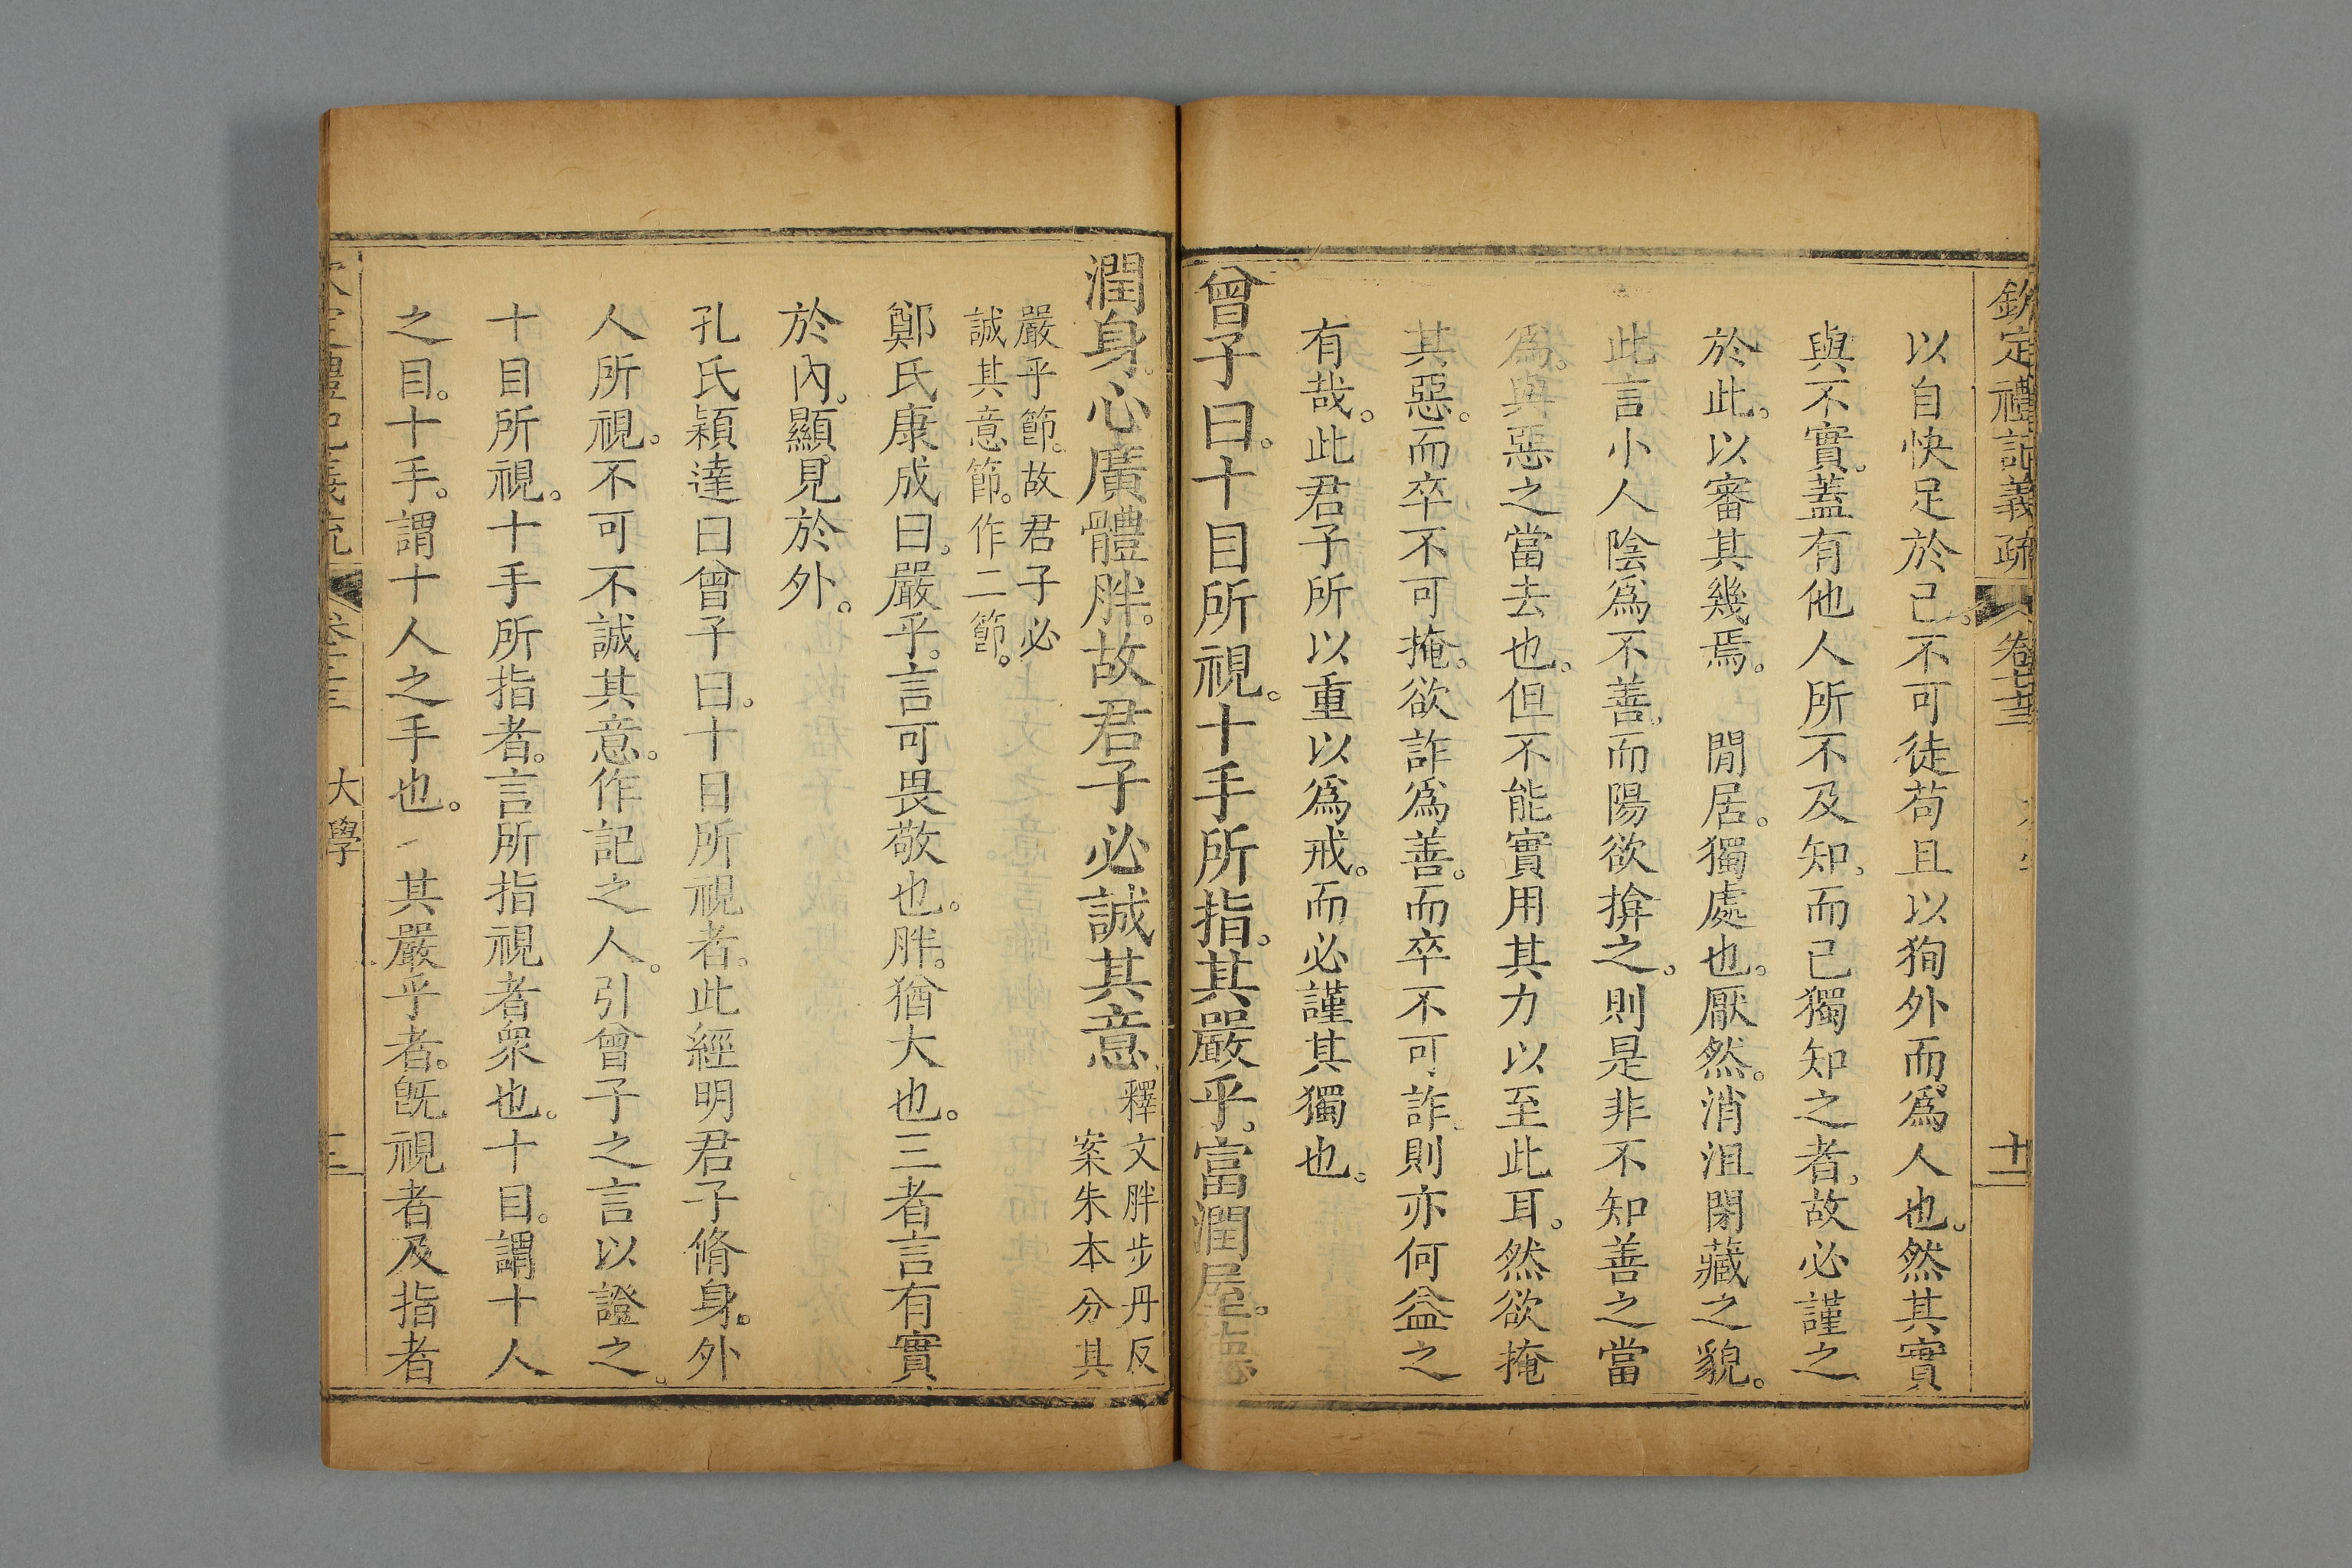 欽定禮記義疏 卷七十三 十二
以自快足於己。不可徒苟且以狥外而爲人也。然其實
與不實。蓋有他人所不及知。而己獨知之者。故必謹之
於此。以審其幾焉。 閒居。獨處也。厭然。消沮閉藏之貌。
此言小人陰爲不善。而陽欲揜之。則是非不知善之當
爲。與惡之當去也。但不能實用其力以至此耳。然欲掩
其惡。而卒不可掩。欲詐爲善。而卒不可詐。則亦何益之
有哉。此君子所以重以爲戒。而必謹其獨也。
曾子曰。十目所視。十手所指。其嚴乎。富潤屋。德
潤身。心廣體胖。故君子必誠其意
釋文胖步丹反
案朱本分其
嚴乎節。故君子必
誠其意節。作二節。
鄭氏康成曰。嚴乎。言可畏敬也。胖。猶大也。三者言有實
於內。顯見於外。
孔氏穎達曰曾子曰。十目所視者。此經明君子脩身。外
人所視。不可不誠其意。作記之人。引曾子之言以證之。
十目所視。十手所指者。言所指視者衆也。十目。謂十人
之目。十手。謂十人之手也。 其嚴乎者。旣視者及指者
大學